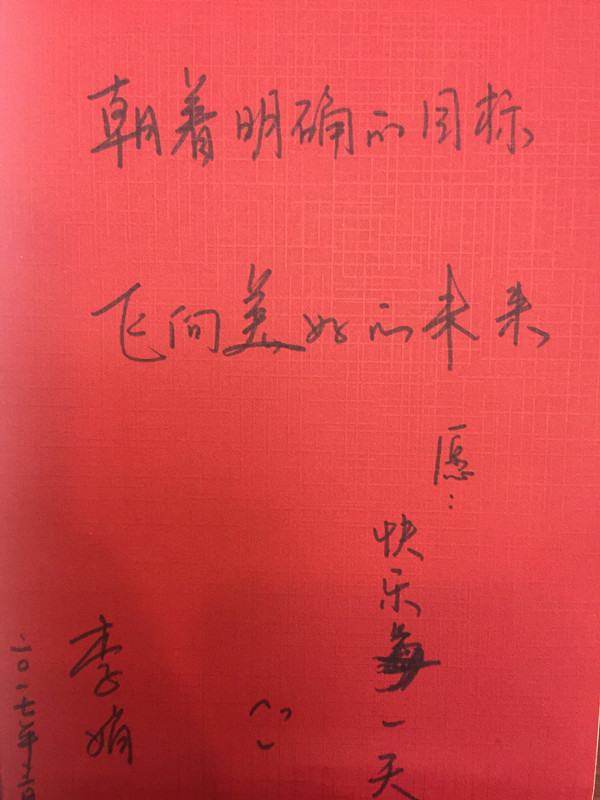 朝着明确的目标
飞向美好的未来
愿:
快乐每一天
李娟